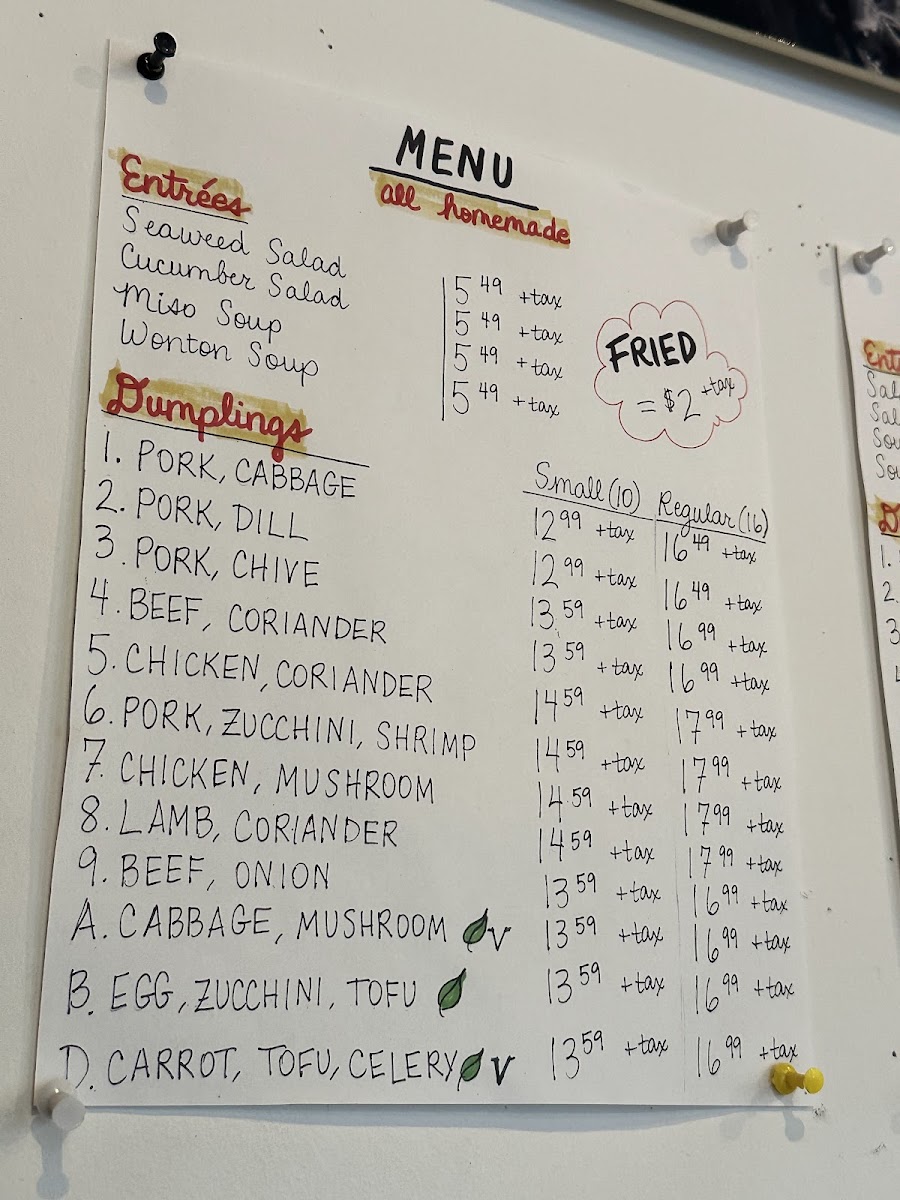 MENU
all homemade
Entrées
Seaweed Salad 5 49 +tax
Cucumber Salad 5 49 +tax
Miso Soup 5 49 +tax
Wonton Soup 5 49 +tax
FRIED
= $2 +tax
Dumplings
Small (10) Regular (16)
1. PORK, CABBAGE 12 99 +tax 16 49 +tax
2. PORK, DILL 12 99 +tax 16 49 +tax
3. PORK, CHIVE 13.59 +tax 16 99 +tax
4. BEEF, CORIANDER 13 59 +tax 16 99 +tax
5. CHICKEN, CORIANDER 14 59 +tax 17 99 +tax
6. PORK, ZUCCHINI, SHRIMP 14 59 +tax 17 99 +tax
7. CHICKEN, MUSHROOM 14.59 +tax 17 99 +tax
8. LAMB, CORIANDER 14 59 +tax 17 99 +tax
9. BEEF, ONION 13 59 +tax 16 99 +tax
A. CABBAGE, MUSHROOM V 13 59 +tax 16 99 +tax
B. EGG, ZUCCHINI, TOFU 13 59 +tax 16 99 +tax
D. CARROT, TOFU, CELERY V 13 59 +tax 16 99 +tax
Ent
Sal
Sal
Sou
Sou
D
1.
2.
3